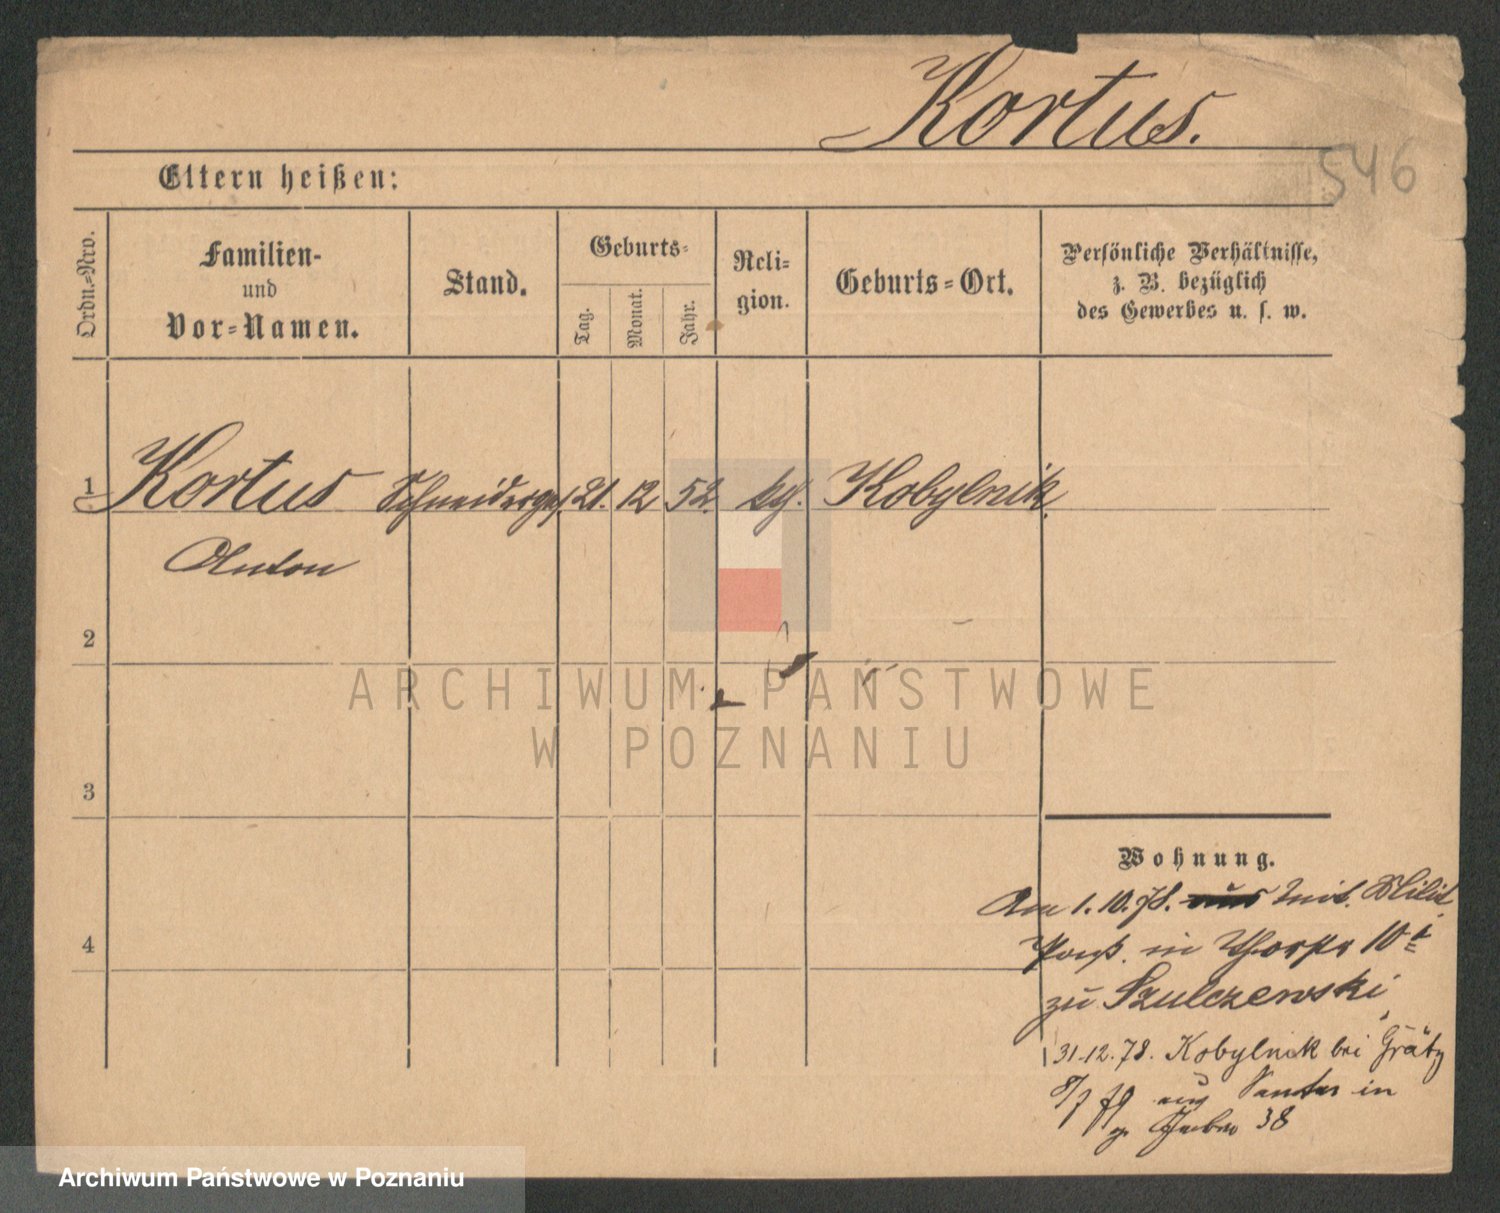 Kortus.
546
Eltern heißen:
Ordn.-Nro.
Familien-
und
Vor-Namen.
Stand.
Geburts-
Tag.
Monat.
Jahr.
Reli-
gion.
Geburts-Ort.
Persönliche Verhältnisse,
z. B. bezüglich
des Gewerbes u. s. w.
1 Kortus Schneiderges. 21. 12 52. kg. Kobylnik.
Anton
2
3
4
Wohnung.
Am 1. 10. 78. Milit.
in 10
zu Szulczewski
31.12.78. Kobylnik bei Grätz
8/7 79 aus in
38
ARCHIWUM PAŃSTWOWE
W POZNANIU
Archiwum Państwowe w Poznaniu